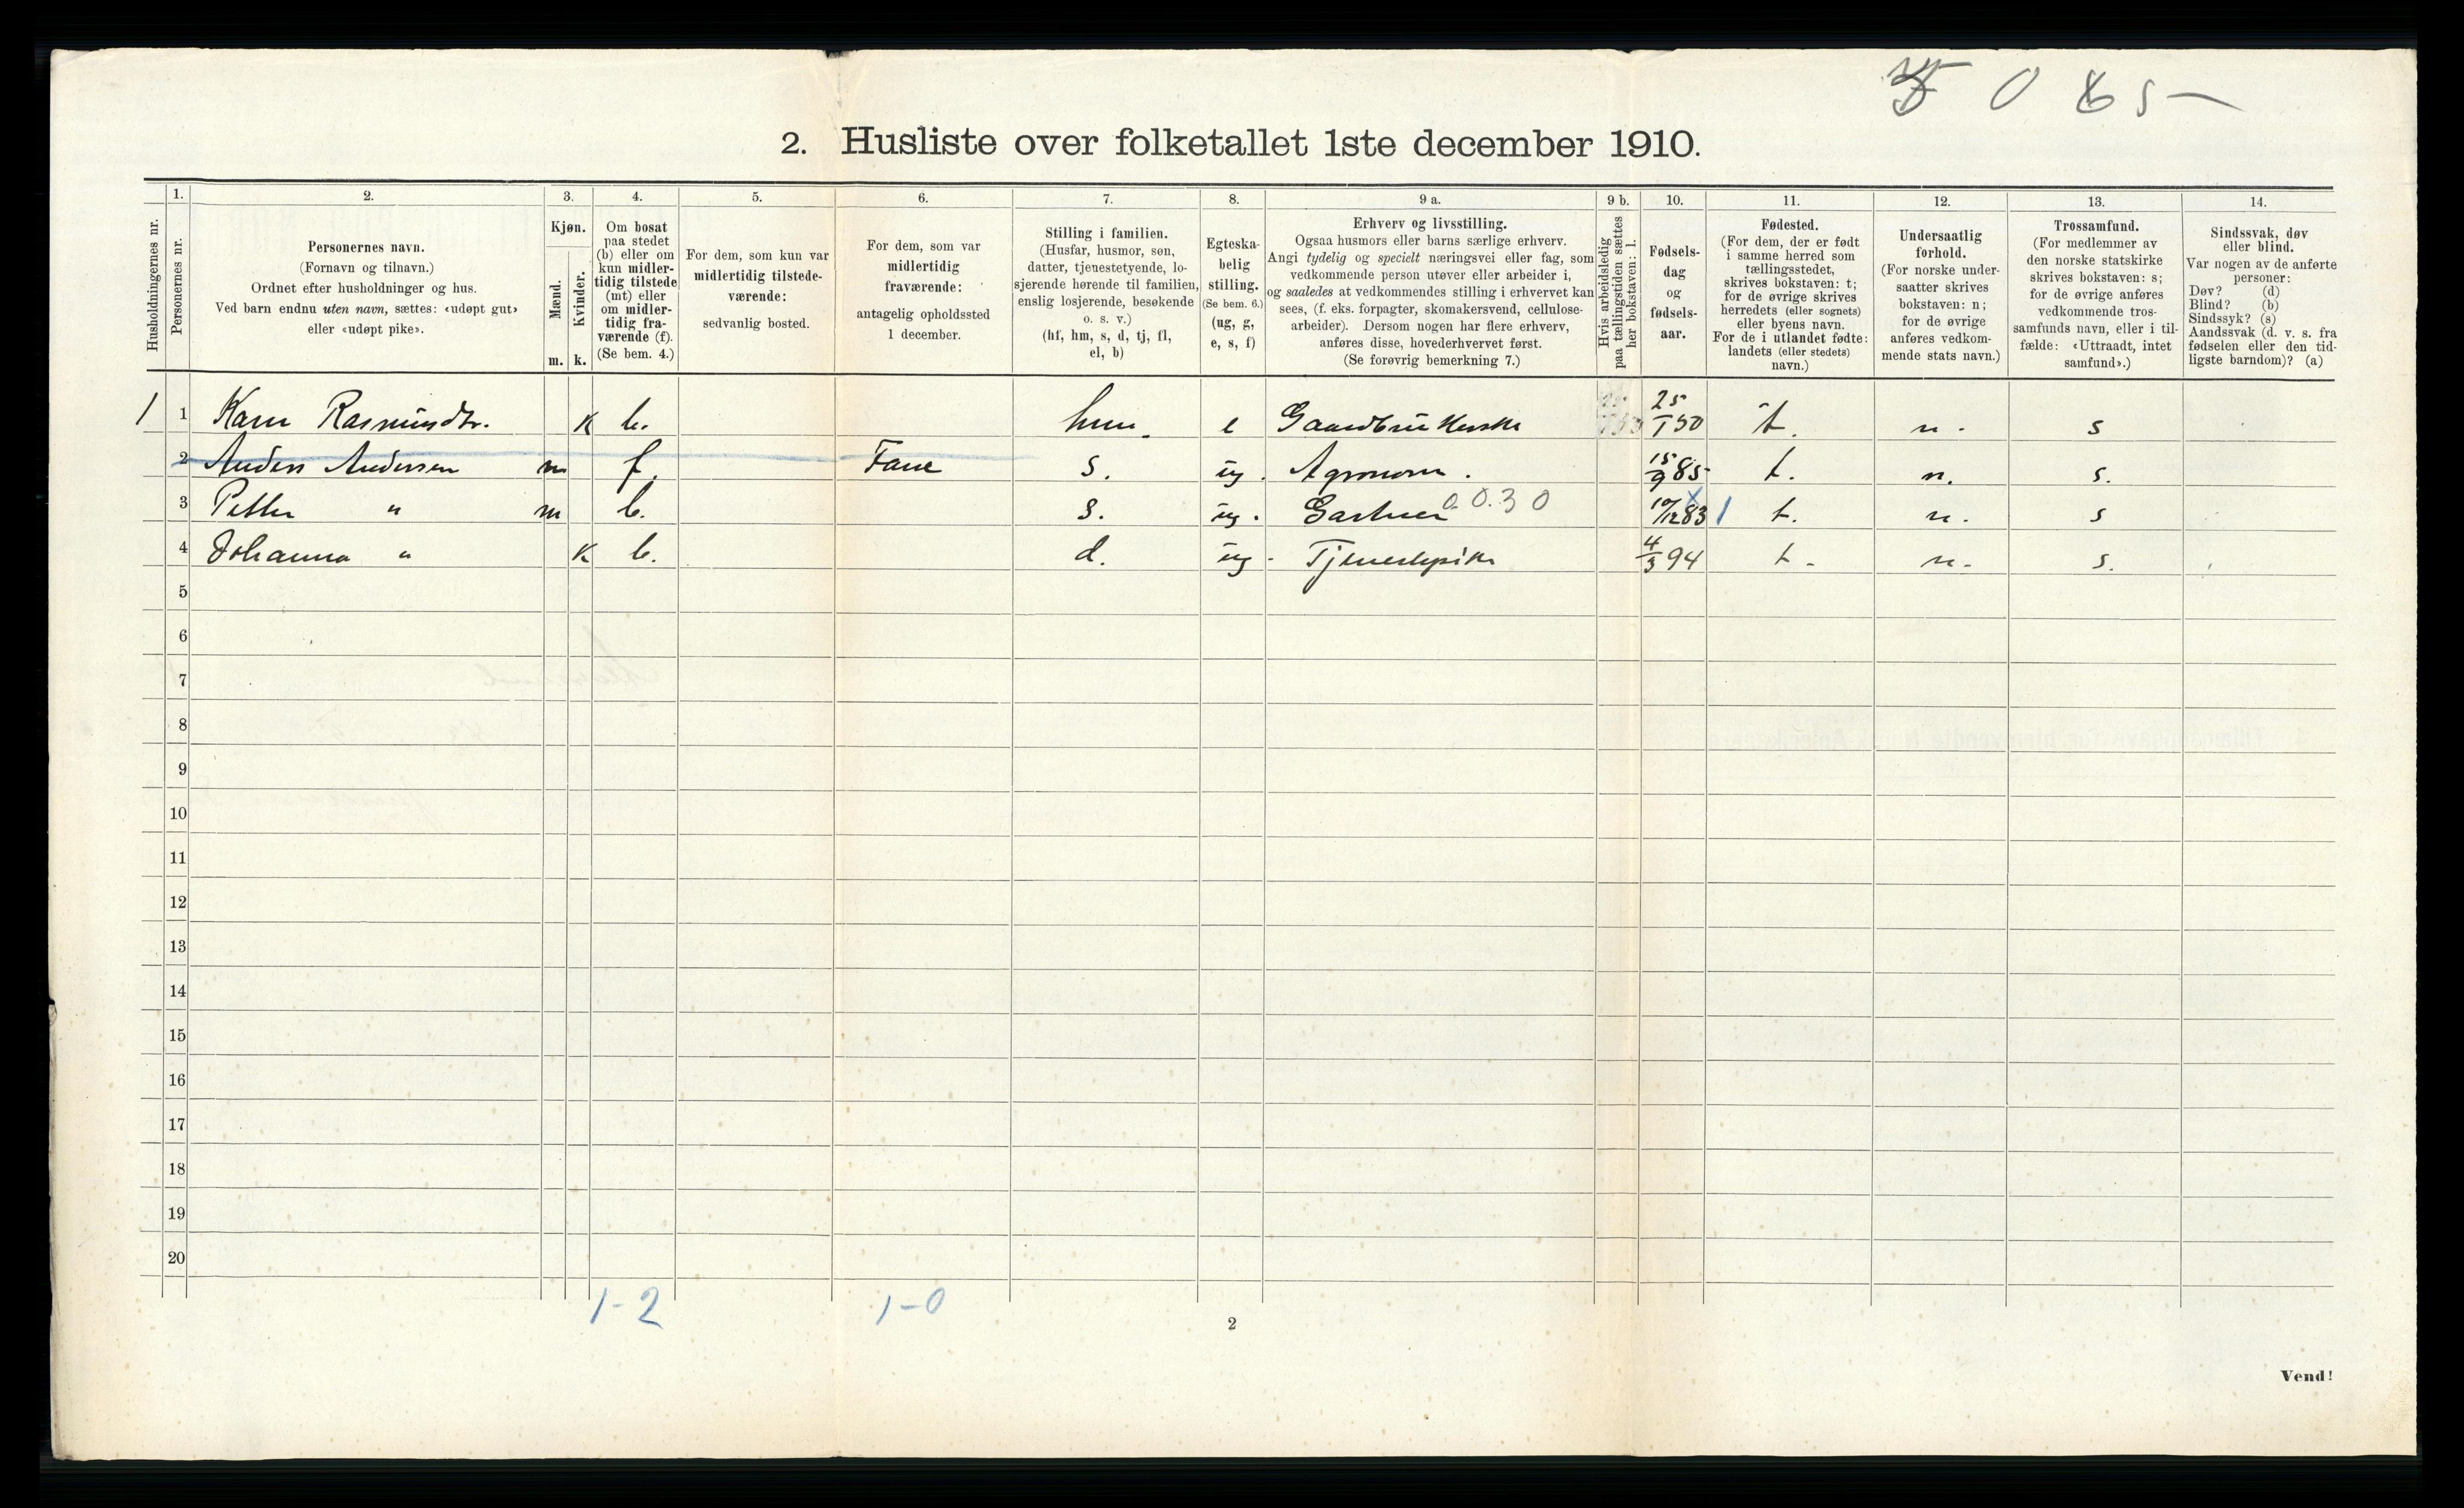 2. Husliste over folketallet 1ste december 1910.
Husholdningernes nr.
1.
Personernes nr.
2.
Personernes navn.
(Fornavn og tilnavn.)
Ordnet efter husholdninger og hus.
Ved barn endnu uten navn, sættes: «udøpt gut»
eller «udøpt pike».
3.
Kjøn.
Mænd.
Kvinder.
m. k.
4.
Om bosat
paa stedet
(b) eller om
kun midler-
tidig tilstede
(mt) eller
om midler-
tidig fra-
værende (f).
(Se bem. 4.)
5.
For dem, som kun var
midlertidig tilstede-
værende:
sedvanlig bosted.
6.
For dem, som var
midlertidig
fraværende:
antagelig opholdssted
1 december.
7.
Stilling i familien.
(Husfar, husmor, søn,
datter, tjenestetyende, lo-
sjerende hørende til familien,
enslig losjerende, besøkende
o. s. v.)
(hf, hm, s, d, tj, fl,
el, b)
8.
Egteska-
belig
stilling.
(Se bem. 6.)
(ug, g,
e, s, f)
9 a.
Erhverv og livsstilling.
Ogsaa husmors eller barns særlige erhverv.
Angi tydelig og specielt næringsvei eller fag, som
vedkommende person utøver eller arbeider i,
og saaledes at vedkommendes stilling i erhvervet kan
sees, (f. eks. forpagter, skomakersvend, cellulose-
arbeider). Dersom nogen har flere erhverv,
anføres disse, hovederhvervet først.
(Se forøvrig bemerkning 7.)
9 b.
Hvis arbeidsledig
paa tællingstiden sættes
her bokstaven: l.
10.
Fødsels-
dag
og
fødsels-
aar.
11.
Fødested.
(For dem, der er født
i samme herred som
tællingsstedet,
skrives bokstaven: t;
for de øvrige skrives
herredets (eller sognets)
eller byens navn.
For de i utlandet fødte:
landets (eller stedets)
navn.)
12.
Undersaatlig
forhold.
(For norske under-
saatter skrives
bokstaven: n;
for de øvrige
anføres vedkom-
mende stats navn.)
13.
Trossamfund.
(For medlemmer av
den norske statskirke
skrives bokstaven: s;
for de øvrige anføres
vedkommende tros-
samfunds navn, eller i til-
fælde: «Uttraadt, intet
samfund».)
14.
Sindssvak, døv
eller blind.
Var nogen av de anførte
personer:
Døv? (d)
Blind? (b)
Sindssyk? (s)
Aandssvak (d. v. s. fra
fødselen eller den tid-
ligste barndom)? (a)
1 1 Karen Rasmusdtr. K b. hm. e Gaardbrukerske 25/1 50 t. n. s
2 Anders Andersen m f. Fane s. ug. Agronom. 15/9 85 t. n. s.
3 Petter " m b. s. ug. Gartner 0.30 10/12 83 1 t. n. s
4 Johanna " K b. d. ug. Tjenestepike 4/3 94 t. n. s.
5
6
7
8
9
10
11
12
13
14
15
16
17
18
19
20
1-2 1-0
2
Vend!